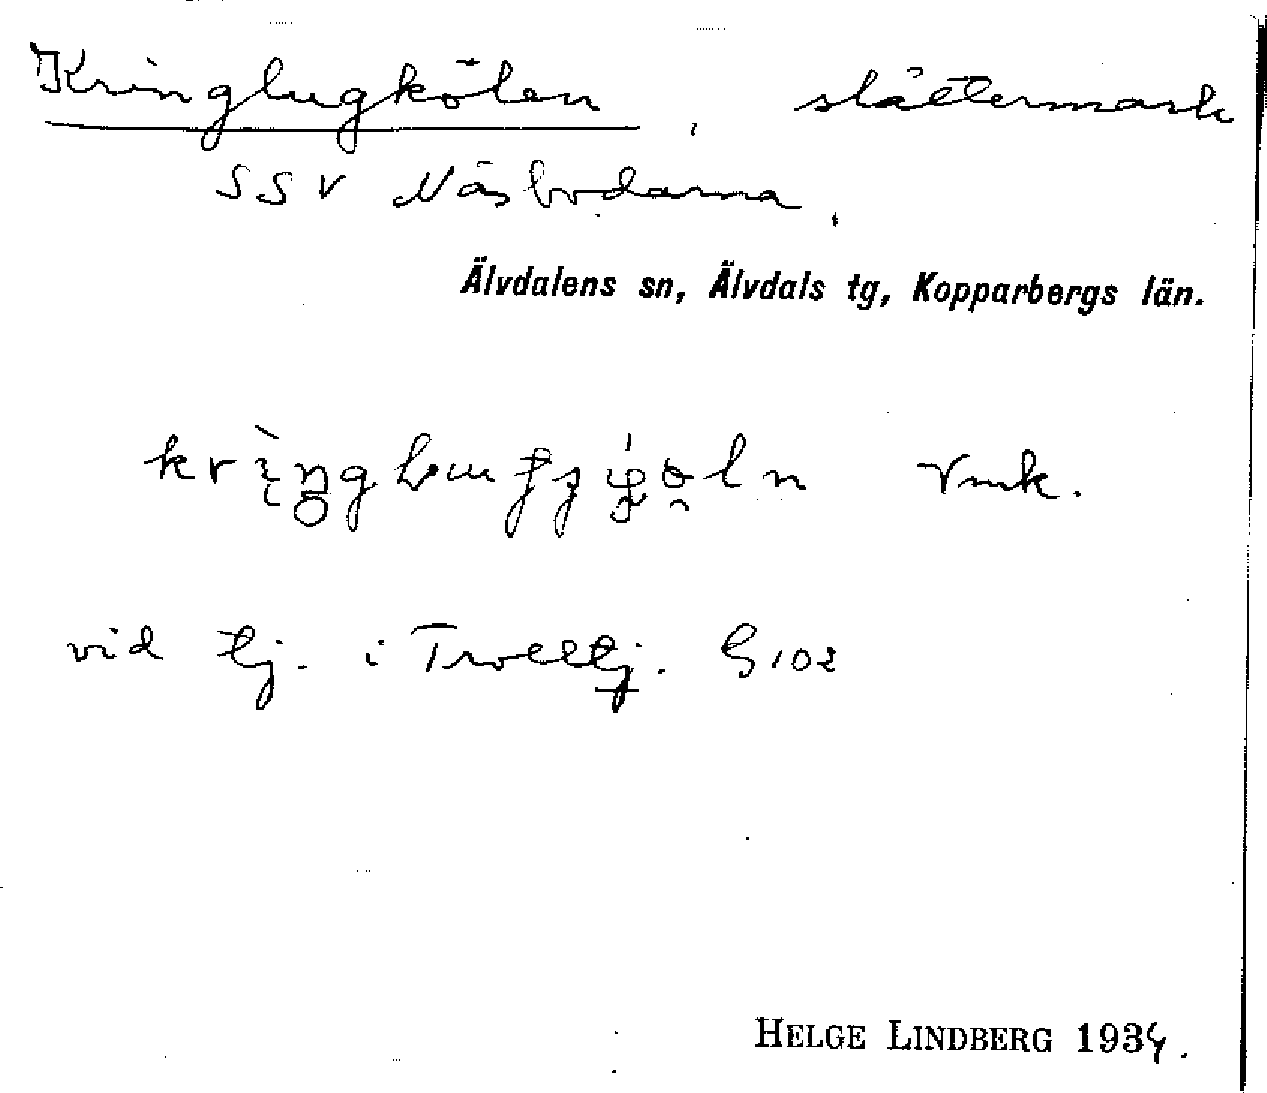 Kringlugkölen, slåttermark
SSV Näsbodarna,
Älvdalens sn, Älvdals tg, Kopparbergs län.
vid tj. i Trolltj. G102
HELGE LINDBERG 1934.